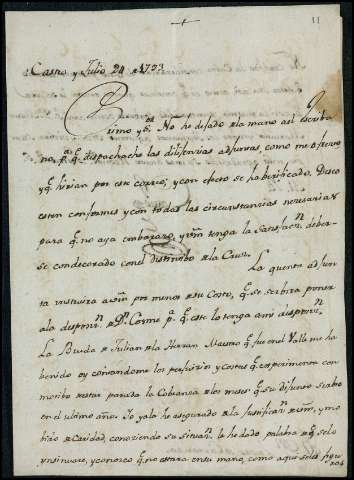 11
Castro y Julio 24 de 1793
Primo y Sor. No he dejado de la mano al escriba
no, pa. q. dispachase las dilijencias adjuntas, como me ofrecio
y q. hirian por este correo, y con efecto se ha berificado, Deseo
esten conformes y con todas las circunstancias necesarias
para q. no aya embarazo, y vm tenga la Satisfacn. de ber-
se condecorado con el distintibo de la Cruz.
La quenta adjun
ta instruira a vm por menor de su Coste, q. se serbira poner
a la disposn. de Dn. Cosme pa. q. este lo tenga a mi disposn.
La Biuda de Julian de la Herran Maestro q. fue en el Valle me ha
benido oy contandome los perjuicios y costas q. experimenta con
motibo de estar parada la Cobranza de los meses q. su difunto serbio
en el ultimo año. Yo ya le he asegurado de la justificacn. de vm, y mo
bido de Caridad, conociendo su situacn. le he dado palabra de q. se lo
insinuare, y conozco q. no estara en su mano, como aqui se les figu